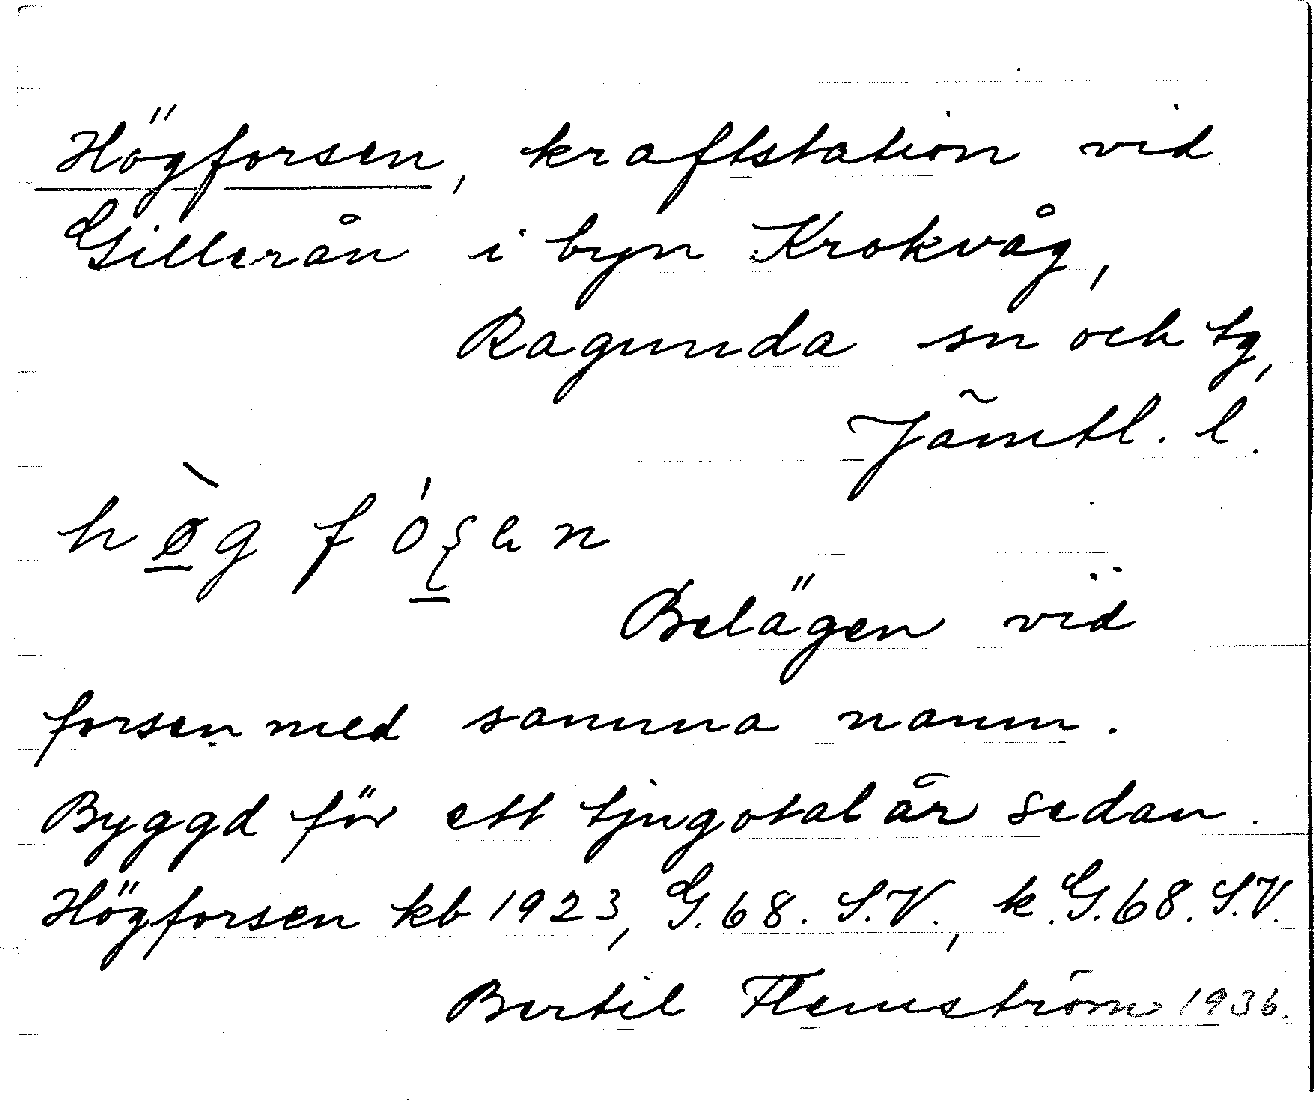 Högforsen, kraftstation vid
Gillerån i byn Krokvåg,
Ragunda sn och tg,
Jämtl. l.
hø̲̀g fóʂ̲en
Belägen vid
forsen med samma namn.
Byggd för ett tjugotal år sedan.
Högforsen kb 1923, G. 68. S.V., k. G. 68. S.V.
Bertil Flemström 1936.